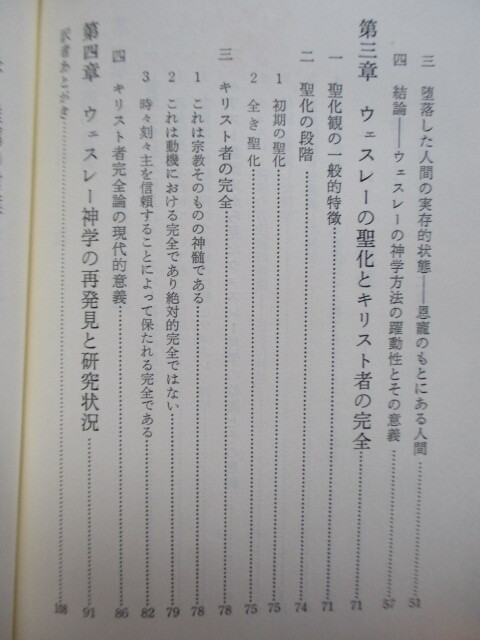 三 堕落した人間の実存的状態――恩寵のもとにある人間 51
四 結論――ウェスレーの神学方法の躍動性とその意義 57
第三章 ウェスレーの聖化とキリスト者の完全 71
一 聖化観の一般的特徴 71
二 聖化の段階 74
1 初期の聖化 75
2 全き聖化 75
三 キリスト者の完全 78
1 これは宗教そのものの神髄である 78
2 これは動機における完全であり絶対的完全ではない 79
3 時々刻々主を信頼することによって保たれる完全である 82
四 キリスト者完全論の現代的意義 86
第四章 ウェスレー神学の再発見と研究状況 91
訳者あとがき 108